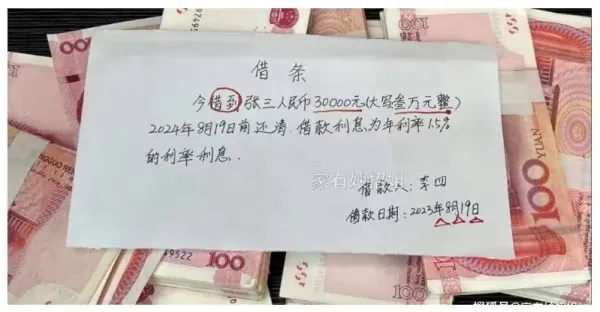 借条
今借到张三人民币30000元(大写叁万元整)
2024年8月19日前还清.借款利息为年利率1.5%
的利率利息.
借款人:李四
借款日期:2023年8月19日
100
100
YUAN
100
100